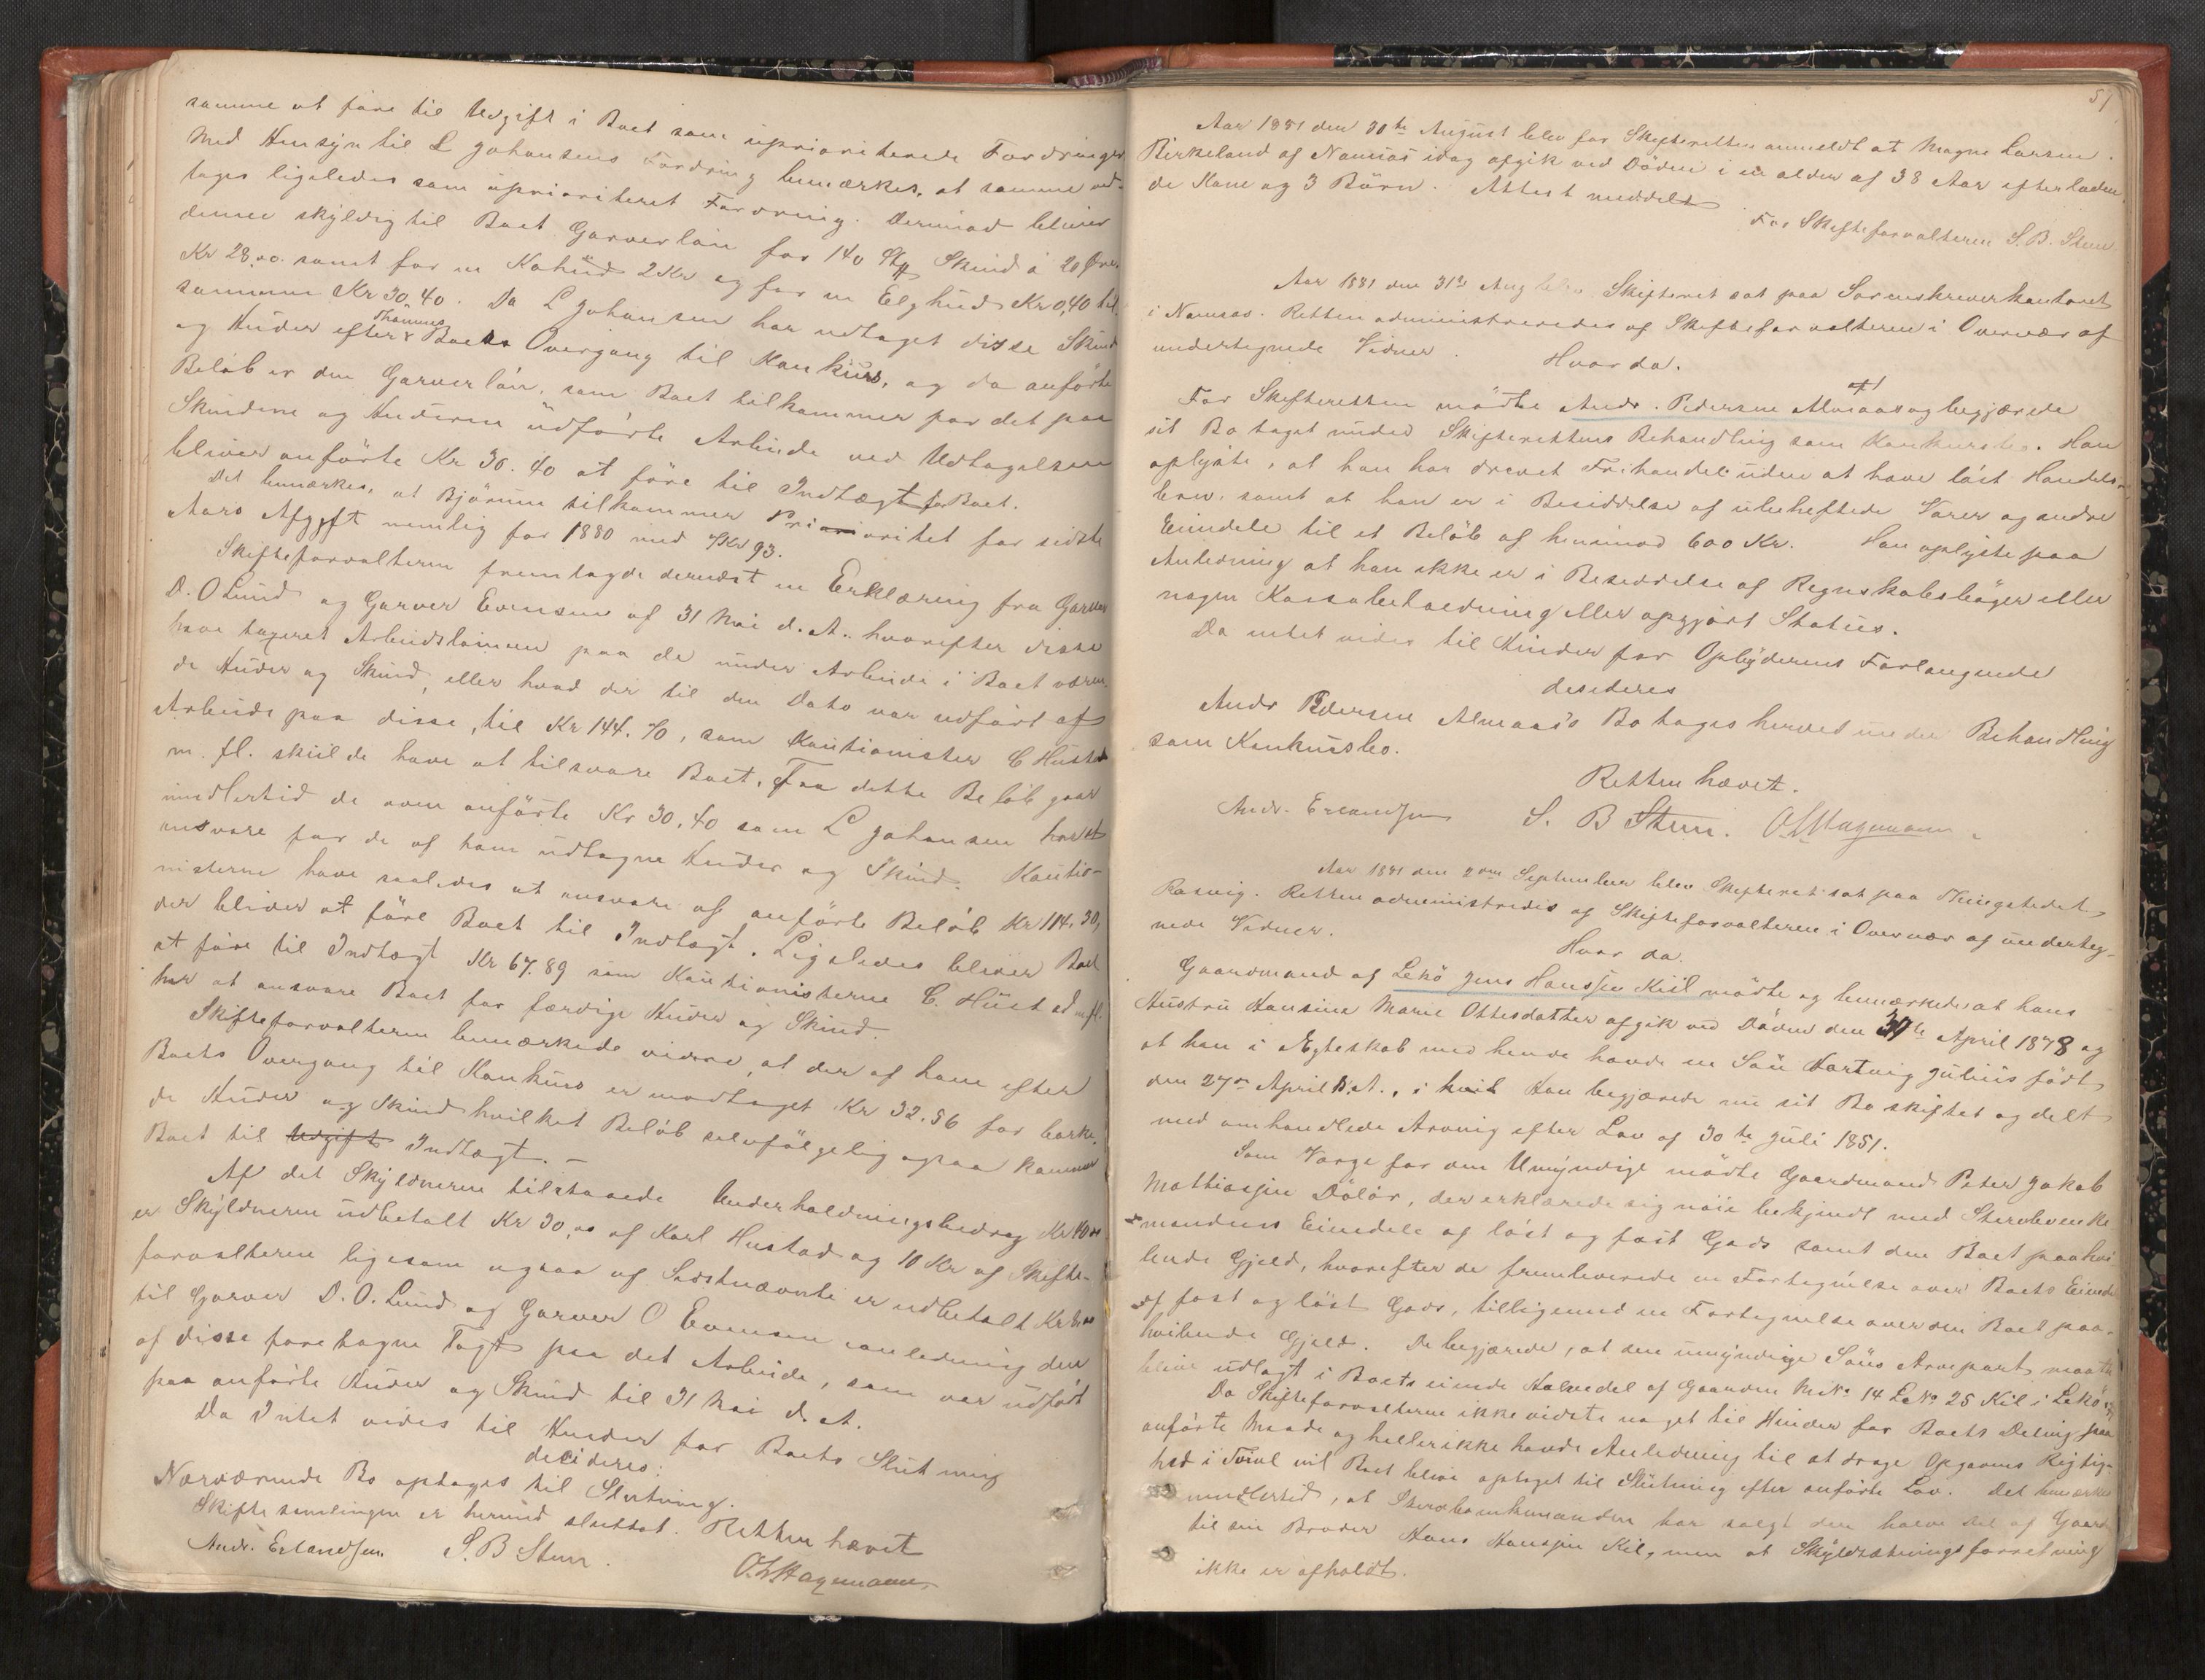 samme at føre til Udgift i Boet som uprioriterede Fordringer
Med Hensyn til L Johansens Fordring bemærkes, at samme ud-
tages ligeledes som uprioriteret Fordring. Derimod bliver
denne skyldig til Boet Garverløn for 140 Skind à 20 Øre,
Kr 28.00. samt for en Kohud 2 Kr og for en Elghud Kr 0,40 til
sammen Kr 30.40. Da L Johansen har udtaget disse Skind
og Huder efter Thommes Boets Overgang til Konkurs, og da anførte
Beløb er den Garverløn, som Boet tilkommer for det paa
Skindene og Huderne udførte Arbeide ved Udtagelsen
bliver anførte Kr 30.40 at føre til Indtægt for Boet.
Det bemærkes, at Bjørum tilkommer Prioritet for sidste
Aars Afgift nemlig for 1880 med Kr 93.
Skifteforvalteren fremlagde dernæst en Erklæring fra Garver
D. O Lund og Garver Evensen af 31 Mai d. A. hvorefter disse
have taxeret Arbeidslønnen paa de under Arbeide i Boet væren-
de Huder og Skind, eller hvad der til den Dato var udført af
Arbeide paa disse, til Kr 144.70, som Kautionister C Hustad
m. fl. skulde have at tilsvare Boet. Fra dette Beløb gaar
imidlertid de oven anførte Kr 30.40 som L Johansen har at
ansvare for de af ham udtagne Huder og Skind. Kautio-
nisterne have saaledes at ansvare af anførte Beløb Kr 114.30,
der bliver at føre Boet til Indtægt. Ligeledes bliver Boet
at føre til Indtægt Kr 67.89 som Kautionisterne C. Hustad m fl.
har at ansvare Boet for færdige Huder og Skind.
Skifteforvalteren bemærkede videre, at der af ham efter
Boets Overgang til Konkurs er modtaget Kr 32.56 for barke-
de Huder og Skind hvilket Beløb selvfølgelig ogsaa kommer
Boet til Udgift Indtægt. –
Af det Skyldneren tilstaaede Underholdningsbidrag Kr 40 00
er Skyldneren udbetalt Kr 30.00 af Karl Hustad og 10 Kr af Skifte-
forvalteren ligesom ogsaa af Sidstnævnte er udbetalt Kr
til Garver D. O. Lund og Garver O Evensen i anledning den
af disse foretagne Taxt paa det Arbeide, som var udført
paa anførte Huder og Skind til 31 Mai d. A.
Da Intet vides til Hinder for Boets Slutning
decideres:
Nærværende Bo optages til Slutning.
Skiftesamlingen er hermed sluttet. Retten hævet
Andr. Erlandsen. S. B Sten. O. Hagemann

51
Aar 1881 den 30te August blev for Skifteretten anmeldt at Magne Larsen
Birkeland af Namsos idag afgik ved Døden i en alder af 38 Aar efterladen-
de Kone og 3 Børn. Attest meddelt
For Skifteforvalteren S. B. Sten
Aar 1881 den 31te Aug blev Skifteret sat paa Sorenskriverkontoret
i Namsos. Retten administreredes af Skifteforvalteren i Overvær af
undertegnede Vidner. Hvor da.
For Skifteretten mødte Andr. Pedersen Almaas og begjærede
sit Bo taget under Skifterettens Behandling som Konkursbo. Han
oplyste, at han har drevet Frihandel uden at have løst Handels-
brev, samt at han er i Besiddelse af ubeheftede Varer og andre
Eiendele til et Beløb af henimod 600 Kr. Han oplyste paa
Anledning at han ikke er i Besiddelse af Regnskabsbøger eller
nogen Kassabeholdning eller opgjørt Status.
Da intet vides til Hinder for Opbyderens Forlangende
desideres
Andr Pedersen Almaas's Bo tages herved under Behandling
som Konkursbo.
Retten hævet.
Andr. Erlandsen S. B Sten. O. Hagemann
Aar 1881 den 2den September blev Skifteret sat paa Thingstedet
Rasvig. Retten administredes af Skifteforvalteren i Overvær af underteg-
nede Vidner.
Hvor da.
Gaardmand af Lekø Jens Hanssen Kiil mødte og bemærkede at hans
Hustru Hansine Marie Ottesdatter afgik ved Døden den 30te April 1878 og
at han i Ægteskab med hende havde en Søn Hartvig Julius født
den 27de April s. A., i hvil Han begjærede nu sit Bo skiftet og delt
med omhandlede Arving efter Lov af 30te Juli 1851.
Som Værge for den Umyndige mødte Gaardmand Peter Jakob
Mathiassen Døløv, der erklærede sig nøie bekjendt med Sterbeenke
mandens Eiendele af løst og fast Gods samt den Boet paahvi
lende Gjeld, hvorefter de fremleverede en Fortegnelse over Boets Eiendele
af fast og løst Gods, tilligemed en Fortegnelse over den Boet paa-
hvilende Gjeld. De begjærede, at den umyndige Søns Arvepart maatte
blive udlagt i Boets eiende Halvedel af Gaarden M No 14 L No 25 Kil i Lekø
Da Skifteforvalteren ikke vidste noget til Hinder for Boets Deling paa
anførte Maade og heller ikke havde Anledning til at drage Opgavens Rigtig-
hed i Tvivl vil Boet blive optaget til Slutning efter anførte Lov. Det bemærkes
imidlertid, at Sterboenkemanden har solgt den halve Del af Gaarden
til sin Broder Hans Hanssen Kil, men at Skyldsætningsforretning
ikke er afholdt.